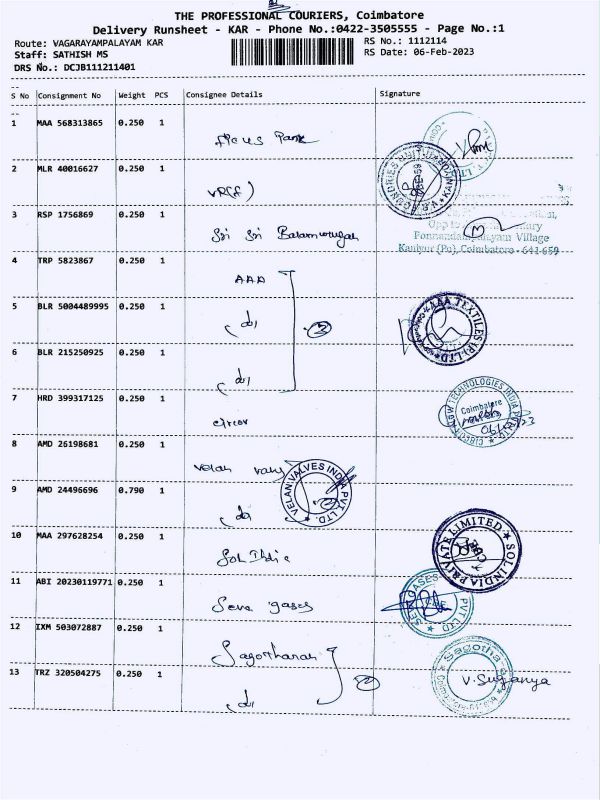 THE PROFESSIONAL COURIERS, Coimbatore
Delivery Runsheet - KAR - Phone No.:0422-3505555 - Page No.:1
Route: VAGARAYAMPALAYAM KAR
RS No.: 1112114
Staff: SATHISH MS
RS Date: 06-Feb-2023
DRS No.: DCJB111211401
S No Consignment No Weight PCS Consignee Details Signature
1 MAA 568313865 0.250 1
2 MLR 40016627 0.250 1
3 RSP 1756869 0.250 1 Sri Sri
Ponnandampalayam Village
Kaniyur (Po), Coimbatore - 641 659
4 TRP 5823867 0.250 1 AAA
5 BLR 5004489995 0.250 1 AAA TEXTILES (P) LTD
6 BLR 215250925 0.250 1
7 HRD 399317125 0.250 1 TECHNOLOGIES INDIA
Coimbatore
8 AMD 26198681 0.250 1 Velan
VELAN VALVES INDIA PVT. LTD.
9 AMD 24496696 0.790 1
10 MAA 297628254 0.250 1 Sol India
SOL INDIA PRIVATE LIMITED
11 ABI 20230119771 0.250 1 Seva gases
GASES PVT LTD
12 IXM 503072887 0.250 1
Sagotha
13 TRZ 320504275 0.250 1 V. Suganya